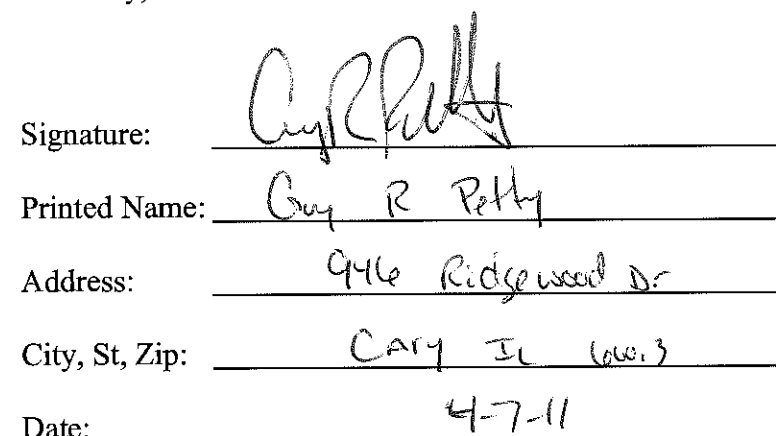 Signature: Guy R Petty
Printed Name: Guy R Petty
Address: 946 Ridgewood Dr
City, St, Zip: Cary IL
Date: 4-7-11